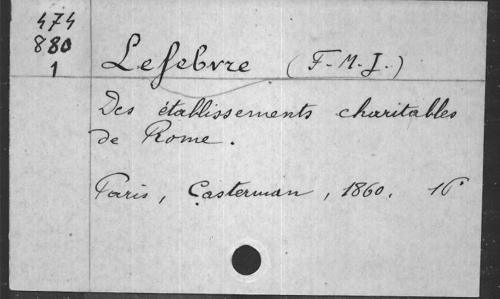 474
880
1
Lefebvre (F.-M.-J.)
Des établissements charitables
de Rome.
Paris, Casterman, 1860. 16°